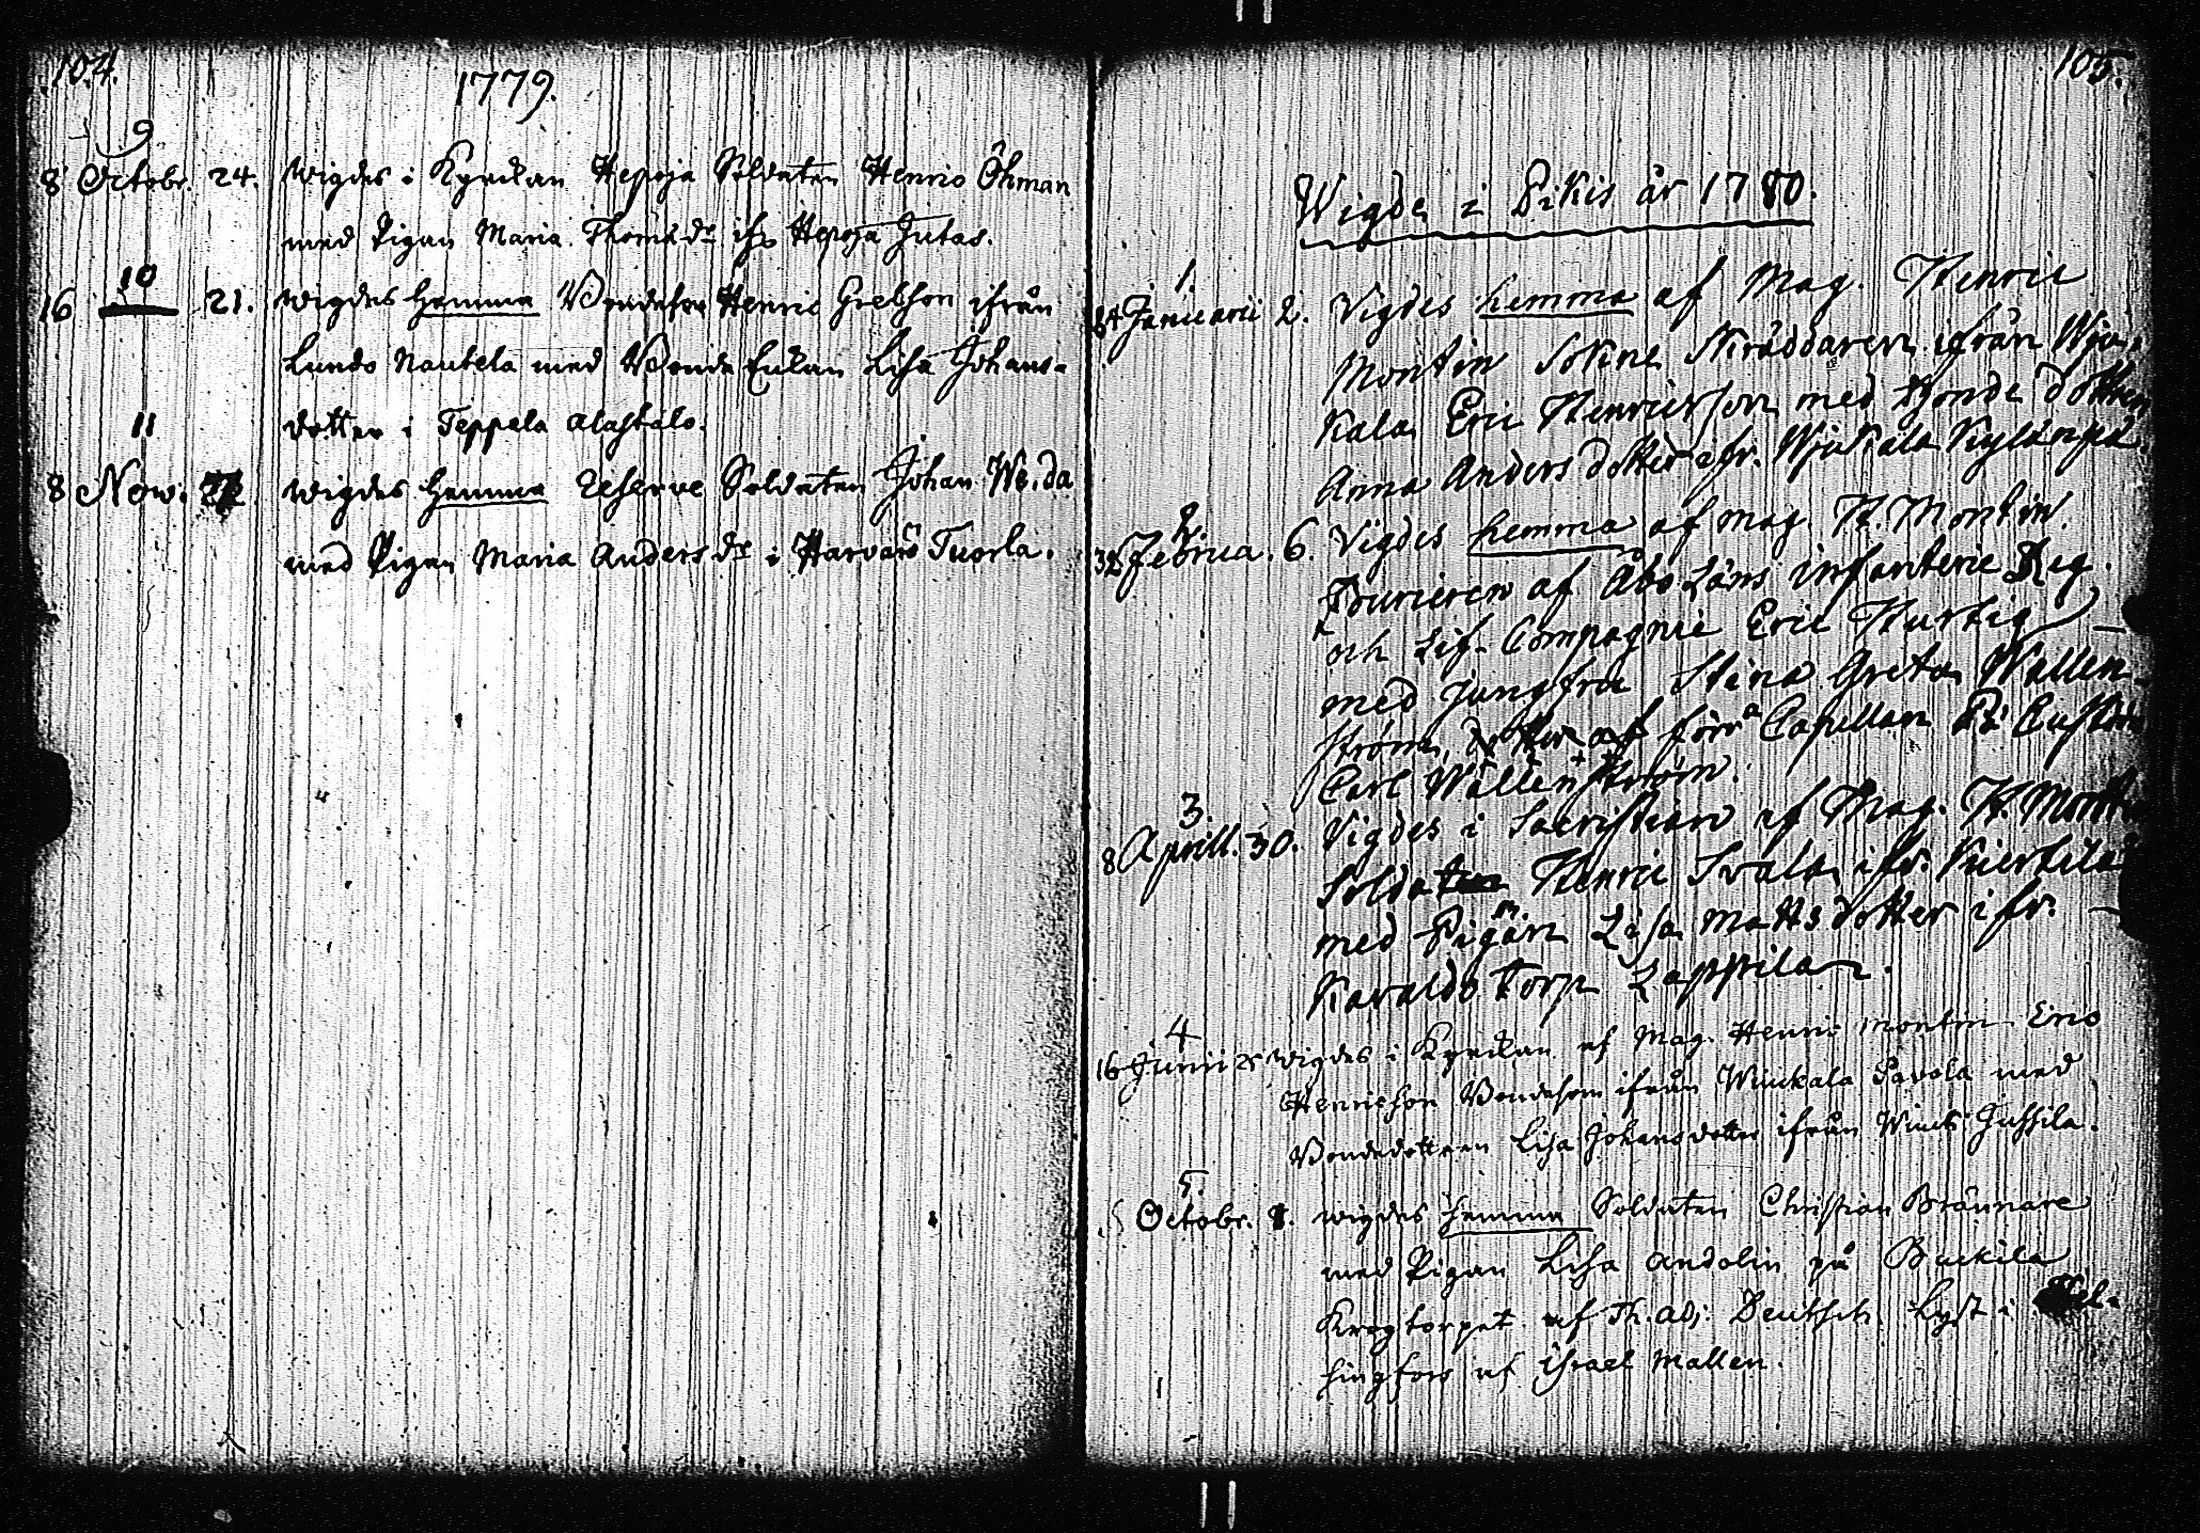 104.
1779.
9
8 Octobr. 24. Wigdes i Kyrckan Hepoja Soldaten Henric Öhman
med Pigan Maria Thoms dr ifr Hepoja Jutas.
10
16 — 21. wigdes hemma Bondeson Henric Grelsson ifrån
Lundo Nautela med Bonde Enkan Lisa Johans-
dotter i Teppala Alastalo.
11
8 Nov. wigdes hemma Reserve Soldaten Johan
med Pigan Maria Anders dr i Harvaro Tuorla.
105.
Wigde i Pikis år 1780.
1.
Januarii 2. Vigdes hemma af Mag. Henric
Montin Sokne Skräddaren ifrån Wju-
kala Eric Henricsson med Bonde dotteren
Anna Andersdotter ifr. Wjukala
2.
Februa. 6. Vigdes hemma af Mag. H. Montin.
Fourieren af Åbo Läns infanterie Reg.
och Lif-Compagnie Eric Hurtig
med Jungfru Stina Greta Wallen-
ström, dotter af förra Capellan
Carl Wallenström.
3.
8 Aprill. 30. Vigdes i Sacristian af Mag. H. Montin
Soldaten Henric Svala ifr.
med Pigan Lisa Mattsdotter ifr.
Torp Lappila.
4
16 Junii wigdes i Kyrckan af Mag. Henric Montin Eric
Henricsson Bondeson ifrån Wiuckala Pavola med
Bondedotteren Lisa Johansdotter ifrån Jussila.
5.
Octobr. 8. wigdes hemma Soldaten Christian Brännare
med Pigan Lisa Andolin på Buckila
Krogtorpet af adj. Deutsch. Lyst i Hel-
singfors af Israel Mallen.